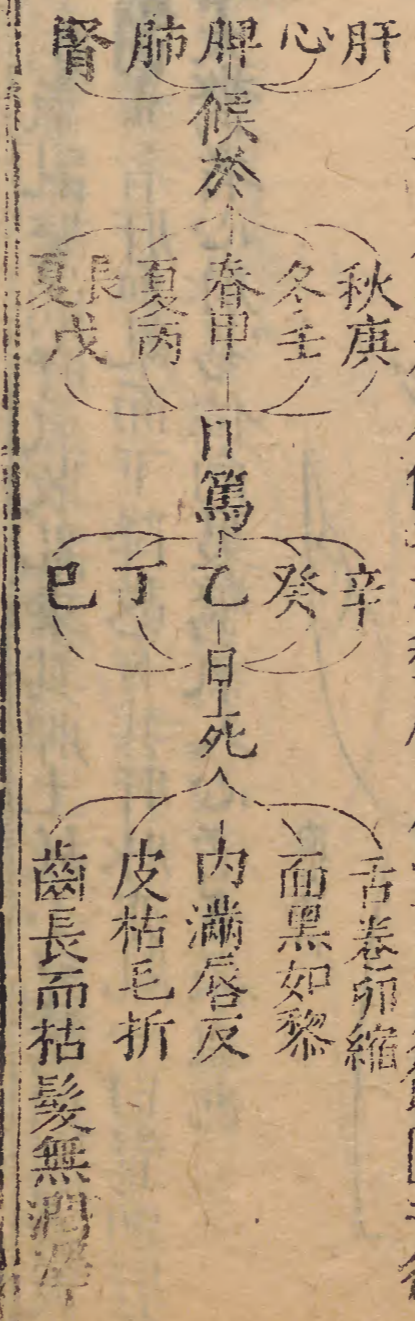 肝
心
脾
肺
腎
候於
秋庚
冬壬
春甲
夏丙
長夏戊
日篤
辛
癸
乙
丁
巳
日死
舌卷卵縮
面黑如黎
肉滿唇反
皮枯毛折
齒長而枯髮無潤澤